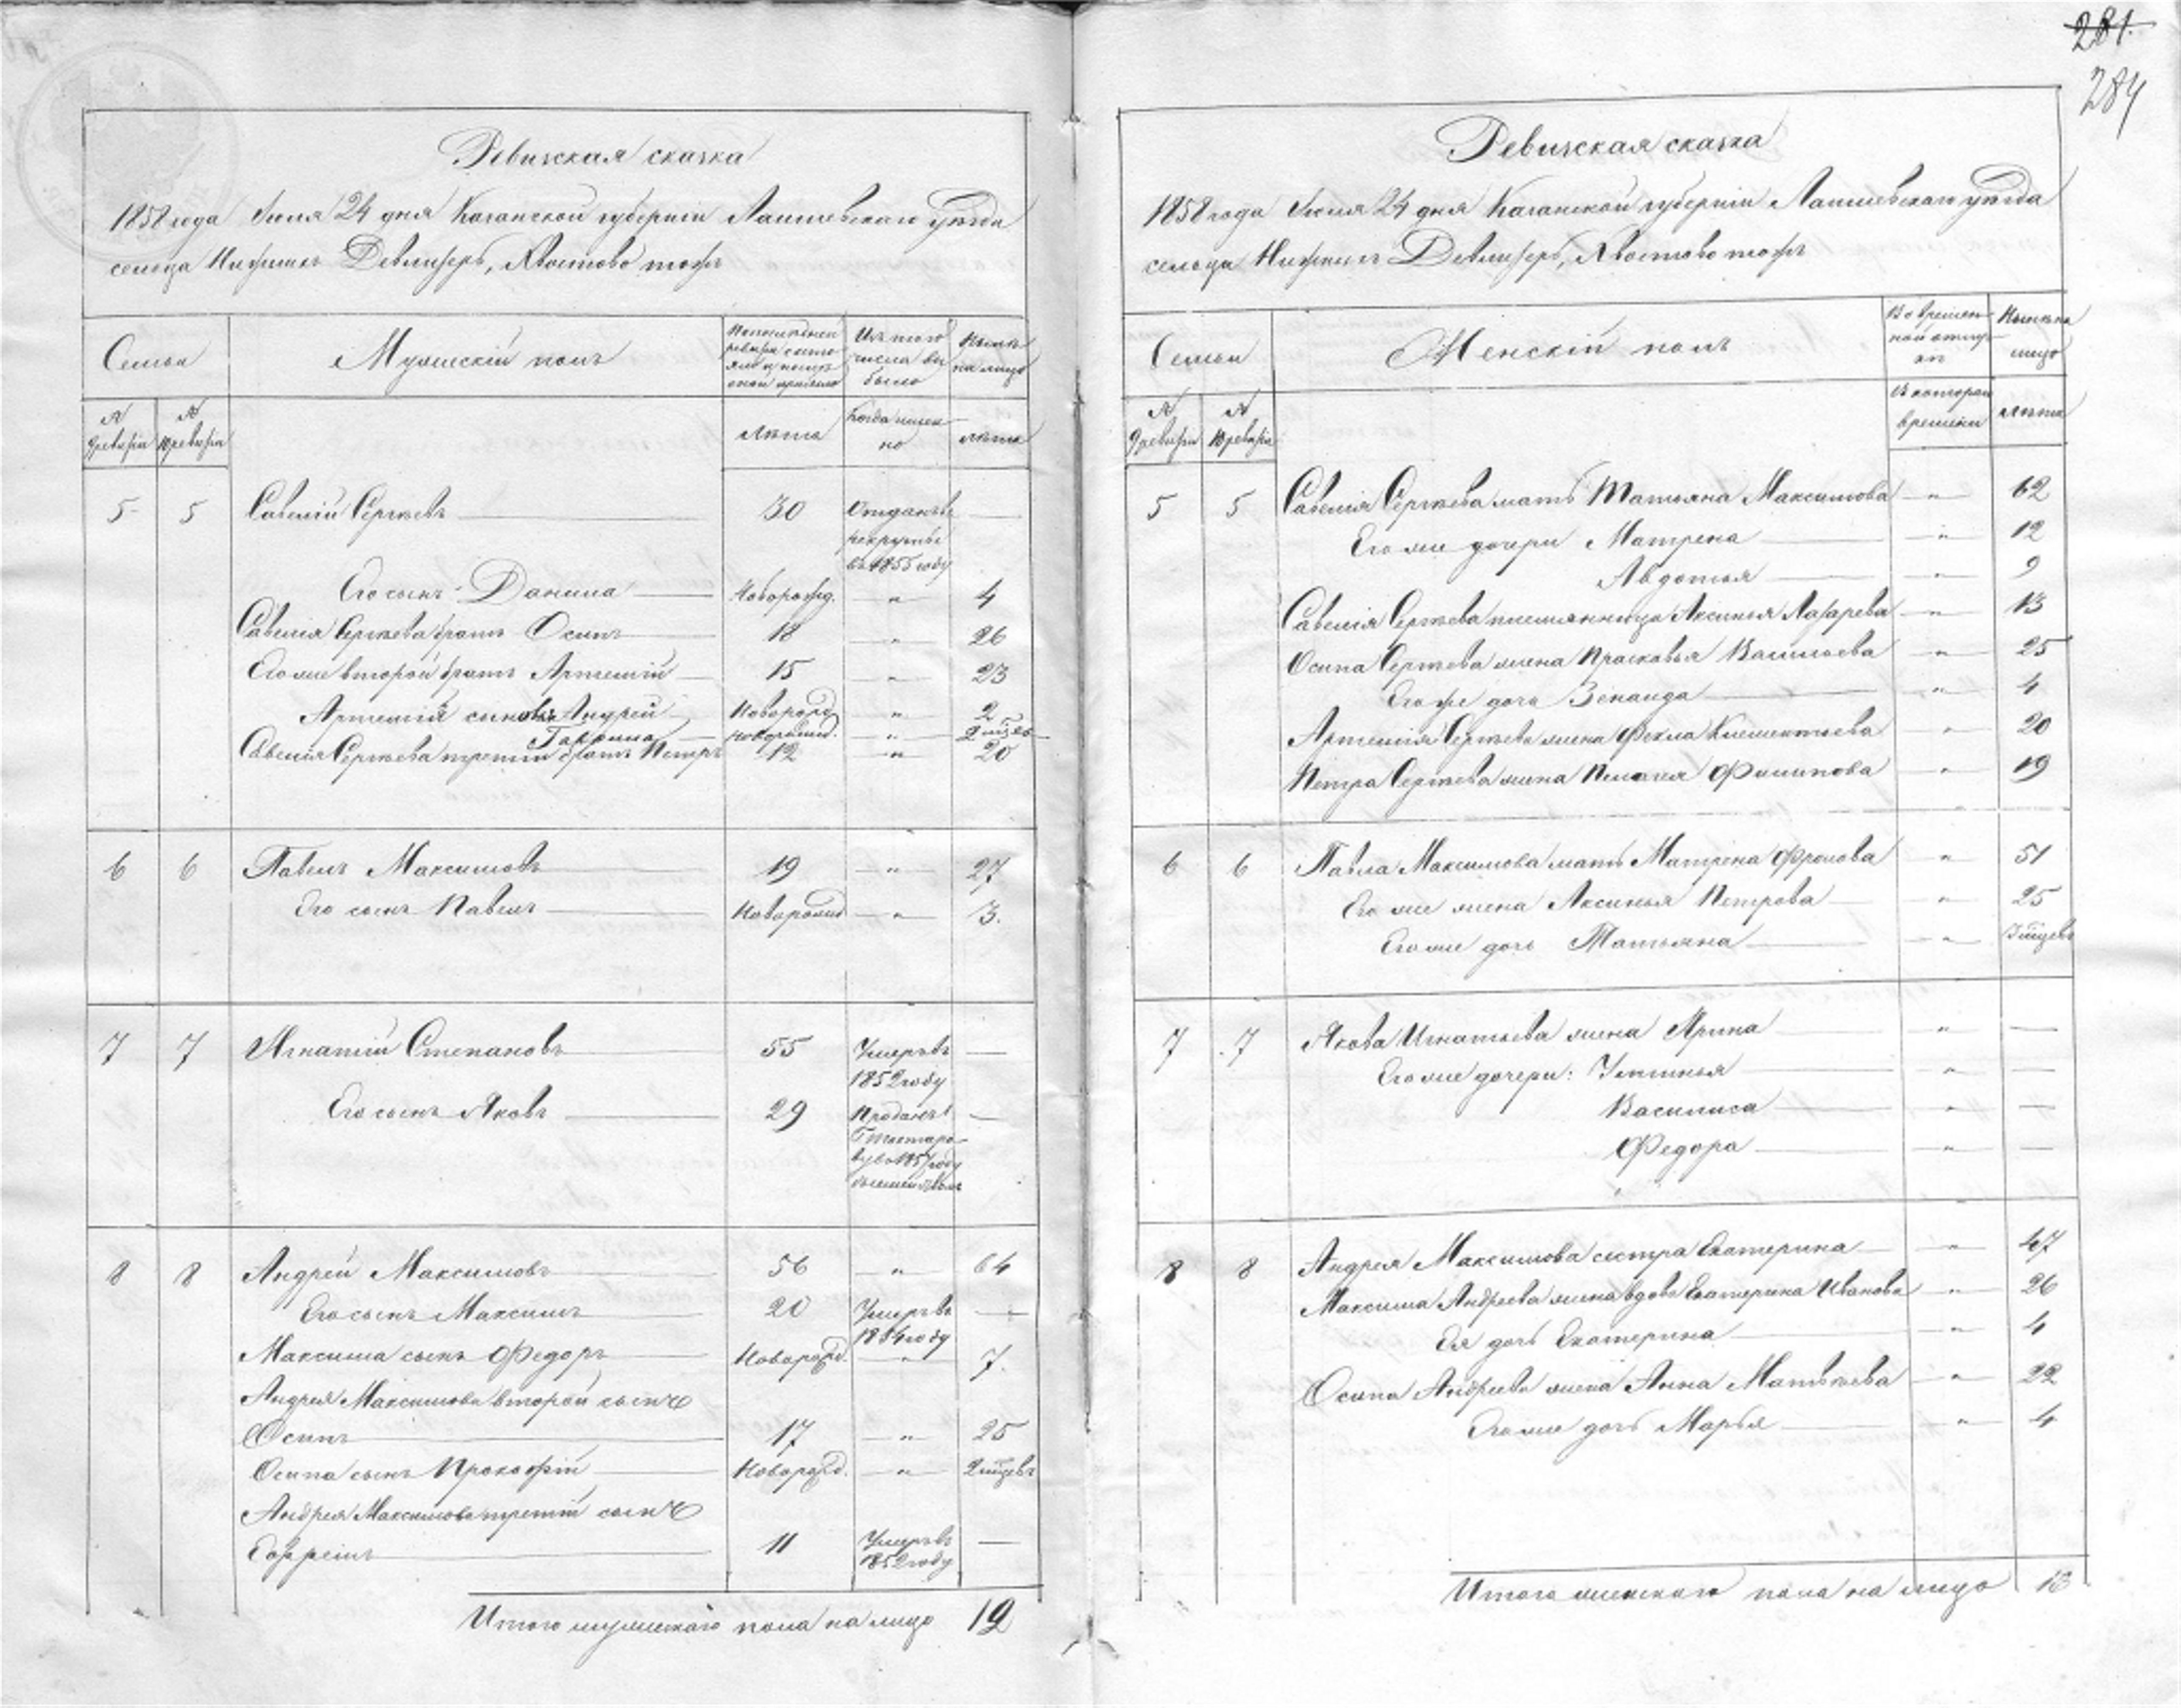 281.
284
Ревизская сказка
1858 года Июля 24 дня Казанской губерніи Лаишевскаго уѣзда
сельца Нижнихъ Девлизерь, Хвостово тожъ
Семьи
Мужескій полъ
Изъ того числа выбыло
Нынѣ на лицо
№ 9 ревизіи
№ 10 ревизіи
лѣта
Когда именно
лѣта
5 5 Савелій Сергѣевъ 30 Отданъ въ
рекруты
въ 1855 году
Его сынъ Данила Новорожд. " 4
Савелія Сергѣева братъ Осипъ 18 " 26
Его же второй братъ Артемій 15 " 23
Артемія сыновья Андрей Новорожд. " 2
Гаврила новорожд. "
Савелія Сергѣева третій братъ Петръ 12 " 20
6 6 Павелъ Максимовъ 19 " 27
Его сынъ Павелъ Новорожд " 3.
7 7 Игнатій Степановъ 55 Умеръ въ
1852 году
Его сынъ Яковъ 29 Проданъ
8 8 Андрей Максимовъ 56 " 64
Его сынъ Максимъ 20 Умеръ въ
1854 году
Максима сынъ Федоръ Новорожд. " 7.
Андрея Максимова второй сынъ
Осипъ 17 " 25
Осипа сынъ Прокофій Новорожд. " 2 мѣсяцевъ
Андрея Максимова третій сынъ
Ефремъ 11 Умеръ въ
1852 году
Итого мужескаго пола на лицо 12
Ревизская сказка
1858 года Июля 24 дня Казанской губерніи Лаишевскаго уѣзда
сельца Нижнихъ Девлизерь, Хвостово тожъ
Семьи
Женскій полъ
Во временной отлучкѣ
Нынѣ на лицо
№ 9 ревизіи
№ 10 ревизіи
времени
лѣта
5 5 Савелія Сергѣева мать Татьяна Максимова " 62
Его же дочери Матрена " 12
Авдотья " 9
Савелія Сергѣева племянница Аксинья Лазарева " 13
Осипа Сергѣева жена Прасковья Васильева " 25
Его же дочь Зенаида " 4
Артемія Сергѣева жена Фекла Клементьева " 20
Петра Сергѣева жена Пелагея Филипова " 19
6 6 Павла Максимова мать Матрена Фролова " 51
Его же жена Аксинья Петрова " 25
Его же дочь Татьяна " 3 мѣсяцевъ
7 7 Якова Игнатьева жена Арина "
Его же дочери: Устинья "
Василиса "
Федора "
8 8 Андрея Максимова сестра Екатерина " 47
Максима Андреева жена вдова Екатерина Иванова " 26
Ея дочь Екатерина " 4
Осипа Андреева жена Анна Матвѣева " 22
Его же дочь Марья " 4
Итого женскаго пола на лицо